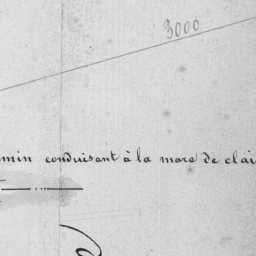 3000
min conduisant à la mare de clai